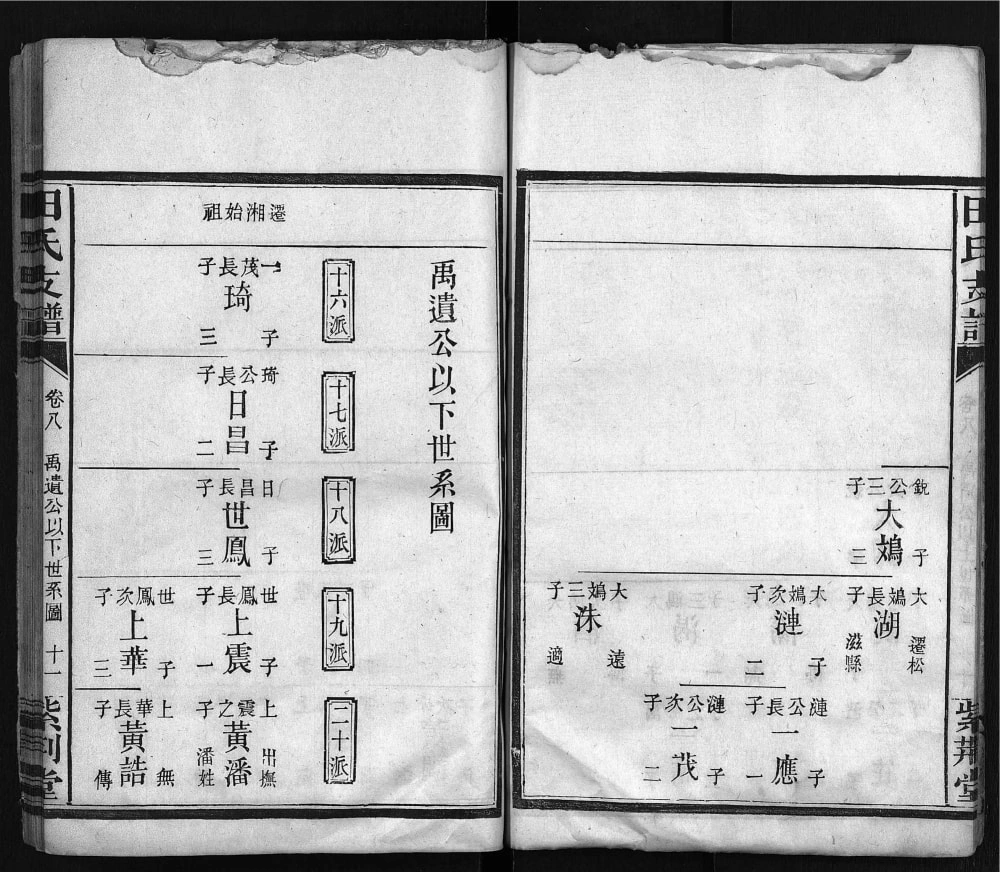 田氏支譜
紫荊堂
銳公三子
大鴆
子三
大鴆長子
湖
遷松滋縣
大鴆次子
漣
子二
大鴆三子
洙
遠適
漣公長子
一應
子一
漣公次子
一茂
子二
禹遺公以下世系圖
十六派
十七派
十八派
十九派
二十派
遷湘始祖
一茂長子
琦
子三
琦公長子
日昌
子二
日昌長子
世鳳
子三
世鳳長子
上震
子一
上震之子
黃潘
出撫潘姓
世鳳次子
上華
子三
上華長子
黃誥
無傳
田氏支譜
卷八
禹遺公以下世系圖
十一
紫荊堂